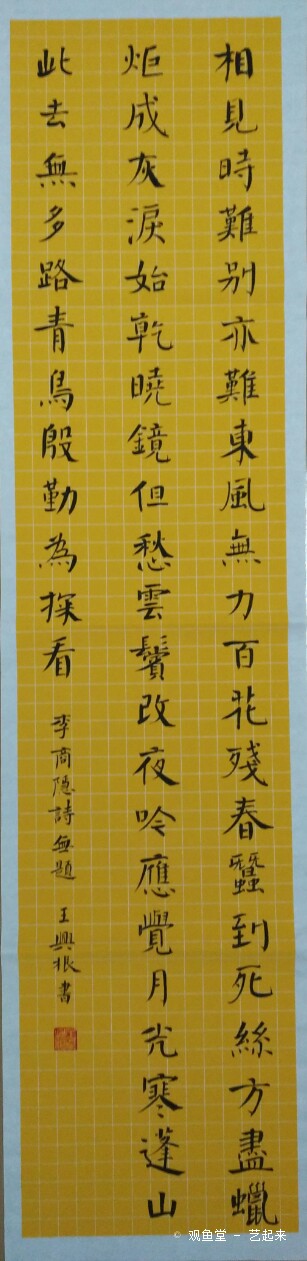 相見時難别亦難東風無力百花殘春蠶到死絲方盡蠟
炬成灰淚始乾曉鏡但愁雲鬢改夜吟應覺月光寒蓬山
此去無多路青鳥殷勤為探看
李商隐詩無題 王興根書
© 观鱼堂 - 艺起来